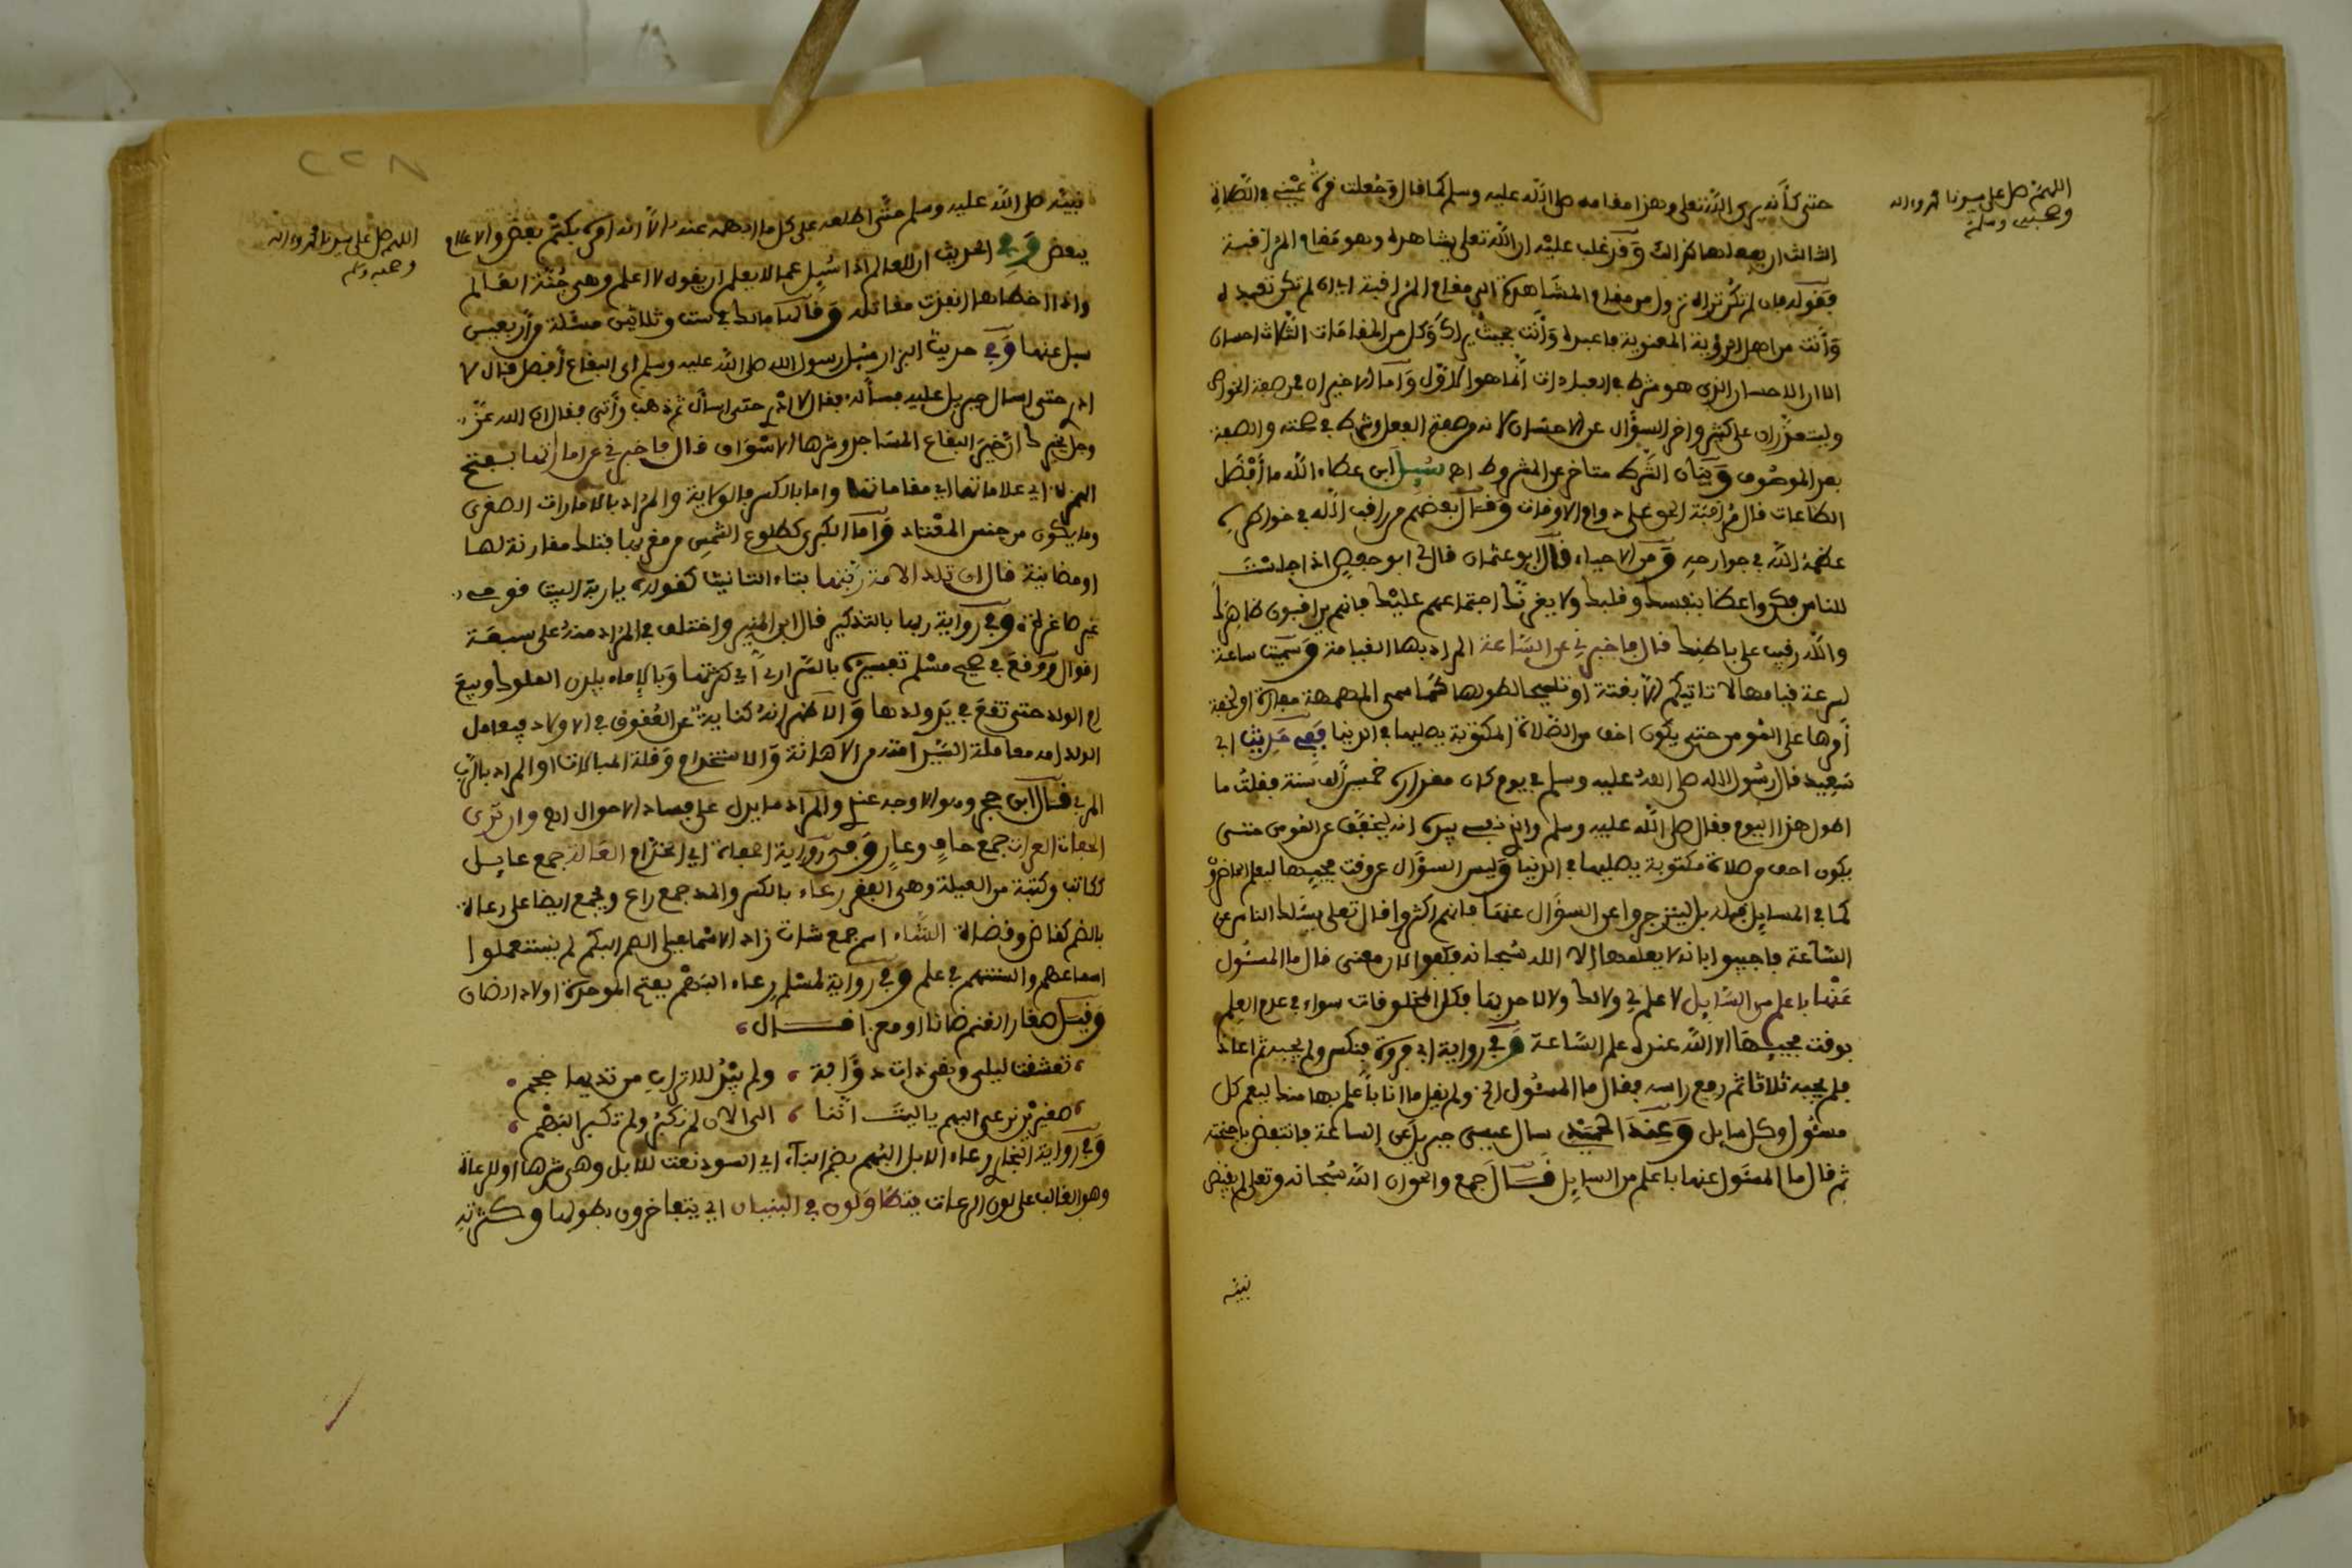 اللهم صل على سيدنا محمد واله
وصحبه وسلم
حتى كأنه يرى الله تعلى وهذا مقامه صلى الله عليه وسلم كما قال وجعلت قرة عيني في الصلاة
الثالث ان يفعلها كذالك وقد غلب عليه ان الله تعلى يشاهده وهو مقام المراقبة
فقوله فإن لم تكن تراه نزول من مقام المشاهدة الى مقام المراقبة اي ان لم تكن تعبده
وأنت من اهل الرؤية المعنوية فاعبده وأنت بحيث يراك وكل من المقامات الثلاث احسان
الا ان الاحسان الذي هو شرط في العبادات انما هو الاول وأما الاخيران في صفة الخواص
ويتعذران على كثير واخر السؤال عن الاحسان لانه صفة الفعل وشرط في صحته والصفة
بعد الموصوف وبيان الشرط متاخر عن المشروط اهـ سئل ابن عطاء الله ما أفضل
الطاعات قال مراقبة الحق على دوام الاوقات وقال بعضهم من راقب الله في خواطره
عظمه الله في جوارحه ومن الاحياء قال ابو عثمان قال لي ابو حفص اذا جلست
للناس فكن واعظا بنفسك وقلبك ولا يغرنك اجتماعهم عليك فانهم يراقبون ظاهرك
والله رقيب على باطنك قال فاخبرني عن الساعة المراد بها القيامة وسميت ساعة
لسرعة قيامها لا تاتيكم إلا بغتة او تلميحا لطولها كما سمى المهمهة مفازة او لخفة
أمرها على المومن حتى يكون اخف من الصلاة المكتوبة يصليها في الدنيا ففي حديث ابي
سعيد قال رسول الله صلى الله عليه وسلم في يوم كان مقداره خمسين ألف سنة فقلت ما
اطول هذا اليوم فقال صلى الله عليه وسلم والذي نفسي بيده انه ليخفف عن المومن حتى
يكون اخف من صلاة مكتوبة يصليها في الدنيا وليس السؤال عن وقت مجيئها ليعلم الحاضرون
كما في المسايل قبله بل لينزجروا عن السؤال عنها فانهم اكثروا قال تعلى يسئلك الناس عن
الساعة فاجيبوا بانه لا يعلمها إلا الله سبحانه قال ما المسئول
عنها باعلم من السايل لا علم لي ولا لك ولا لاحد بها فكل المخلوقات سواء في عدم العلم
بوقت مجيئها الا الله عنده علم الساعة وفي رواية ابي فروة فنكس ولم يجبه ثم اعاد
فلم يجبه ثلاثا ثم رفع راسه فقال ما المسئول الخ ولم يقل ما انا بأعلم بها منك ليعم كل
مسئول وكل سايل وعند الحميدي سال عيسى جبريل عن الساعة فانتفض باجنحته
ثم قال ما المسئول عنها باعلم من السايل قال جمع والحق ان الله سبحانه وتعلى لم يقبض
نبيه
٢٢٨
اللهم صل على سيدنا محمد واله
وصحبه وسلم
نبيه صلى الله عليه وسلم حتى اطلعه على كل ما ابهمه عنه الا انه امره بكتم بعض والاعلام
ببعض وفي الحديث ان العالم اذا سئل عما لا يعلم ان يقول لا اعلم وهي جنة العالم
واذا اخطاها انفذت مقاتله وقالها مالك في ست وثلاثين مسئلة وأربعين
سيل عنها وفي حديث البزار سئل رسول الله صلى الله عليه وسلم اي البقاع أفضل فقال لا
ادري حتى اسال جبريل عليه فسأله فقال لا ادري حتى اسأل ثم ذهب وأتى فقال ان الله عز
وجل يخبرك ان خير البقاع المساجد وشرها الاسواق قال فاخبرني عن اماراتها بفتح
الهمزة اي علاماتها اي مقاماتها واما بالكسر فالولاية والمراد بالامارات الصغرى
وما يكون من جنس المعتاد وأما الكبرى كطلوع الشمس من مغربها فتلك مقارنة لها
او مضايفة قال ان تلد الامة ربتها بتاء التانيث كقوله يا ربة البيت قومي
غير صاغرة وفي رواية ربها بالتذكير قال ابن المنير واختلف في المراد منه على سبعة
اقوال ووقع في صحيح مسلم تفسيره بالسراري أي كثرتها وبالإماء يلدن الملوك وبيع
ام الولد حتى تقع في يد ولدها والاظهر انه كناية عن العقوق في الاولاد فيعامل
الولد امه معاملة السيد امته من الاهانة والاستخدام وقلة المبالات او المراد بالرب
المربي قال ابن حجر وهو الاوجه عندي والمراد ما يدل على فساد الاحوال اهـ وان ترى
الحفاة العراة جمع حاف وعار وفي رواية الحفدة اي الخدام العالة جمع عايل
ككاتب وكتبة من العيلة وهي الفقر رعاء بالكسر والمد جمع راع ويجمع ايضا على رعاة
بالضم كقاض وقضاة الشاء اسم جمع شاة زاد الاسماعيلي الصم البكم لم يستعملوا
اسماعهم والسنتهم في علم وفي رواية لمسلم رعاء البهم بفتح الموحدة اولاد الضان
وقيل صغار الغنم ضانا او معزا قال
تعشقت ليلى وهي ذات ذؤابة ولم يبد للاتراب من ثديها حجم
صغيرين نرعى البهم ياليت اننا الى الان لم نكبر ولم تكبر البهم
وفي رواية البخاري رعاء الابل البهم بضم الباء اي السود نعت للابل وهي شرها او للرعاة
وهو الغالب على لون الرعاة يتطاولون في البنيان اي يتفاخرون بطولها وكثرته